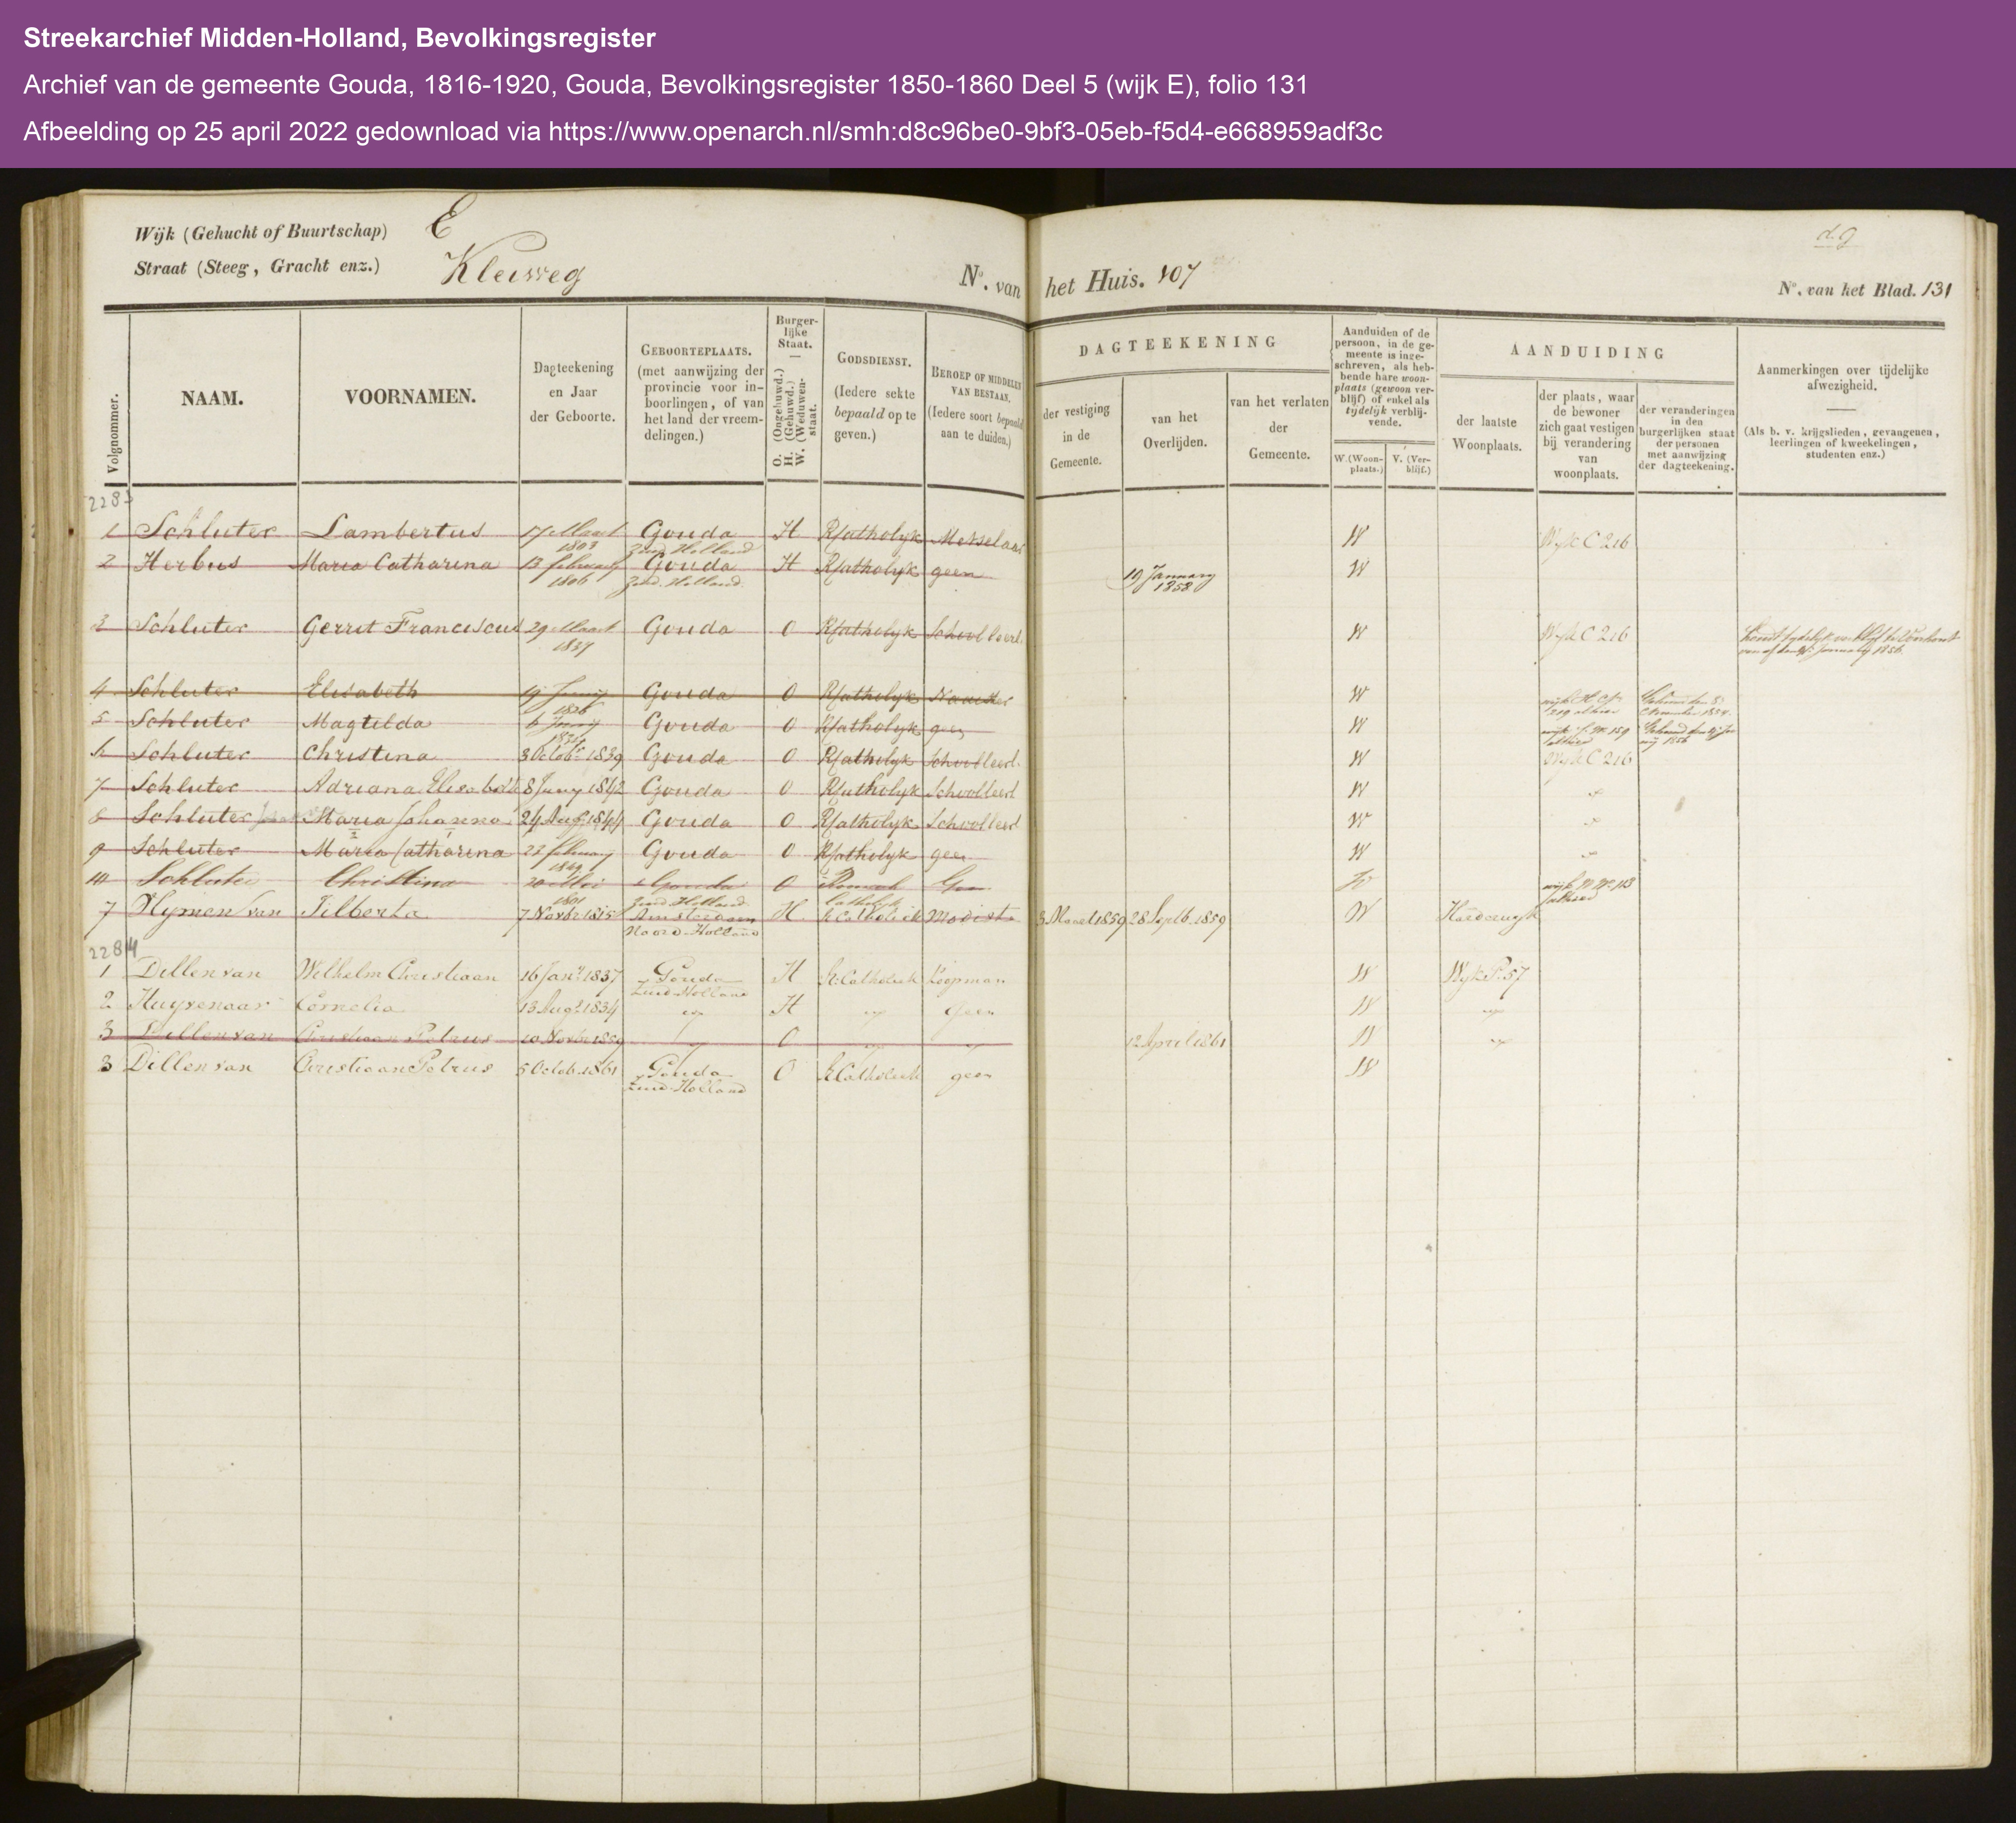 Streekarchief Midden-Holland, Bevolkingsregister
Archief van de gemeente Gouda, 1816-1920, Gouda, Bevolkingsregister 1850-1860 Deel 5 (wijk E), folio 131
Afbeelding op 25 april 2022 gedownload via https://www.openarch.nl/smh:d8c96be0-9bf3-05eb-f5d4-e668959adf3c
Wijk (Gehucht of Buurtschap) E
Straat (Steeg, Gracht enz.) Kleiweg
No. van het Huis. 107
No. van het Blad. 131
Volgnommer.
NAAM.
VOORNAMEN.
Dagteekening
en Jaar
der Geboorte.
GEBOORTEPLAATS.
(met aanwijzing der
provincie voor in-
boorlingen, of van
het land der vreem-
delingen.)
Burger-
lijke
Staat.
O. (Ongehuwd.)
H. (Gehuwd.)
W. (Weduwen-
staat.
GODSDIENST.
(Iedere sekte
bepaald op te
geven.)
BEROEP OF MIDDELEN
VAN BESTAAN.
(Iedere soort bepaald
aan te duiden.)
DAGTEEKENING
der vestiging
in de
Gemeente.
van het
Overlijden.
van het verlaten
der
Gemeente.
Aanduiden of de
persoon, in de ge-
meente is inge-
schreven, als heb-
bende hare woon-
plaats (gewoon ver-
blijf) of enkel als
tijdelijk verblij-
vende.
W. (Woon-
plaats.)
V. (Ver-
blijf.)
AANDUIDING
der laatste
Woonplaats.
der plaats, waar
de bewoner
zich gaat vestigen
bij verandering
van
woonplaats.
der veranderingen
in den
burgerlijken staat
der personen
met aanwijzing
der dagteekening.
Aanmerkingen over tijdelijke
afwezigheid.
(Als b. v. krijgslieden, gevangenen,
leerlingen of kweekelingen,
studenten enz.)
2283
1 Schluter Lambertus 17 Maart 1803 Gouda Zuid Holland H RKatholyk Metselaar W Wyk C 216
2 Herbus Maria Catharina 13 february 1806 Gouda Zuid Holland H RKatholyk geen 19 January 1858 W
3 Schluter Gerrit Franciscus 29 Maart 1837 Gouda O RKatholyk Schoolleerl W Wyk C 216
4 Schluter Elisabeth Gouda O RKatholyk W
5 Schluter Magtilda Gouda O RKatholyk geen W
6 Schluter Christina 3 Octobr 1839 Gouda O RKatholyk Schoolleerl W Wyk C 216
7 Schluter Adriana Elisabeth 8 Juny 1842 Gouda O RKatholyk Schoolleerl W
8 Schluter Maria Johanna 24 Aug 1844 Gouda O RKatholyk Schoolleerl W
9 Schluter Maria Catharina 22 february 1849 Gouda O RKatholyk geen W
10 Schluter Christina 20 Mei 1801 Gouda Zuid Holland O Roomsch Catholyk Geen W
7 Hymen van Tilberta 7 Novbr 1815 Amsterdam Noord-Holland H R Catholiek Modiste 3 Maart 1859 28 Septb. 1859 W Harderwyk
2284
1 Dillen van Wilhelm Christiaan 16 Jany 1837 Gouda Zuid-Holland H R. Catholiek Koopman W Wyk P. 57
2 Huyvenaar Cornelia 13 Aug. 1834 H Geen W
3 Dillen van Christiaan Petrus 10 Novbr 1859 O 12 April 1861 W
3 Dillen van Christiaan Petrus 5 Octob. 1861 Gouda Zuid-Holland O R Catholiek geen W